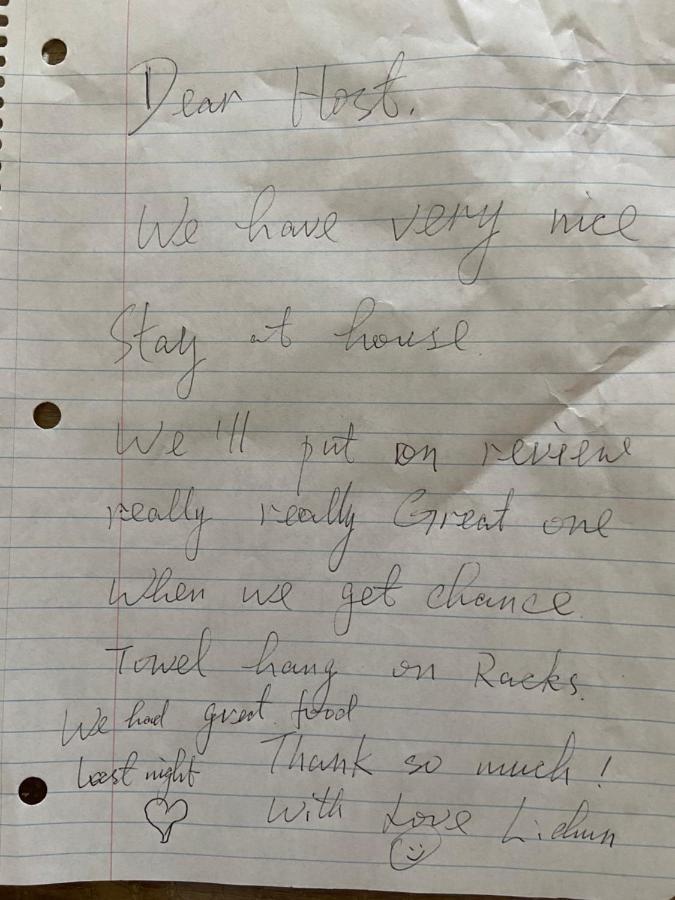 Dear Host.
We have very nice
Stay at house.
We'll put on review
really really Great one
When we get chance.
Towel hang on Racks.
We had great food
last night
Thank so much!
With Love Lichun